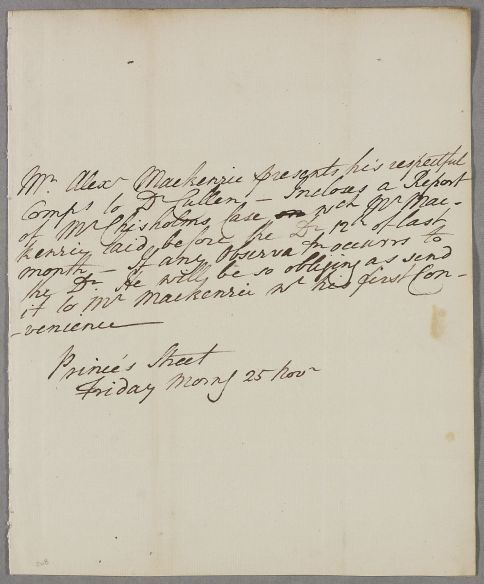 Mr Alexr Mackenzie presents his respectful
Comps to Dr Cullen – Incloses a Report
of Mr Chisholms Case wch Mr Mac-
kenzie laid before the Dr 12th of last
month – if any Observan occurrs to
the Dr He will be so obliging as send
it to Mr Mackenzie wt his first Con-
-venience
Prince's Street
Friday Morng 25 Novr